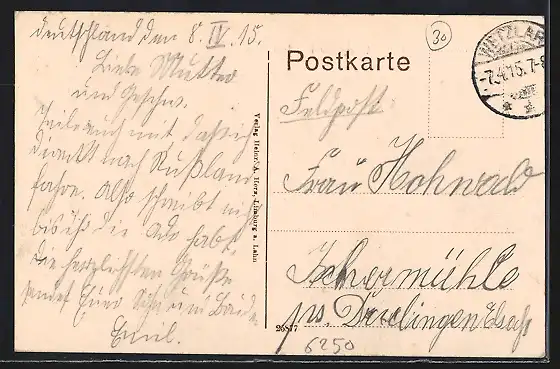 Deutschland den 8.IV.15.
Liebe Mutter
und Geschw.
Teile euch mit daß ich
direckt nach Rußland
fahre. Also schreibt nicht
bis ihr die Adr habt.
Die herzlichsten Grüße
sendet Euer Sohn und Bruder
Emil.
Verlag Heinr. A. Herz, Limburg a. Lahn
26837
30
Postkarte
WETZLAR
-7.4.15.7-8
Feldpost
Frau Hohwald
mühle
ps. Drulingen Elsaß
6250